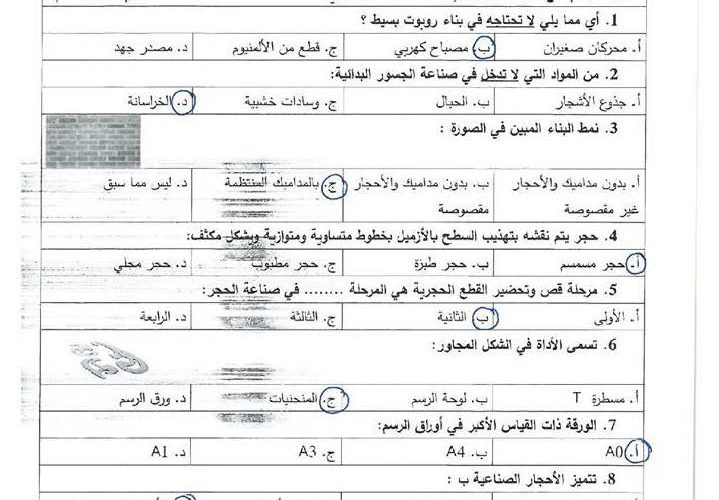 1. أي مما يلي لا تحتاجه في بناء روبوت بسيط ؟
أ. محركان صغيران ب. مصباح كهربي ج. قطع من الألمنيوم د. مصدر جهد
2. من المواد التي لا تدخل في صناعة الجسور البدائية:
أ. جذوع الأشجار ب. الحبال ج. وسادات خشبية د. الخراسانة
3. نمط البناء المبين في الصورة :
أ. بدون مداميك والأحجار ب. بدون مداميك والأحجار ج. بالمداميك المنتظمة د. ليس مما سبق
غير مقصوصة مقصوصة
4. حجر يتم نقشه بتهذيب السطح بالأزميل بخطوط متساوية ومتوازية وبشكل مكثف:
أ. حجر مسمسم ب. حجر طبزة ج. حجر مطبوب د. حجر مجلي
5. مرحلة قص وتحضير القطع الحجرية هي المرحلة ........ في صناعة الحجر:
أ. الأولى ب. الثانية ج. الثالثة د. الرابعة
6. تسمى الأداة في الشكل المجاور:
أ. مسطرة T ب. لوحة الرسم ج. المنحنيات د. ورق الرسم
7. الورقة ذات القياس الأكبر في أوراق الرسم:
أ. A0 ب. A4 ج. A3 د. A1
8. تتميز الأحجار الصناعية ب :